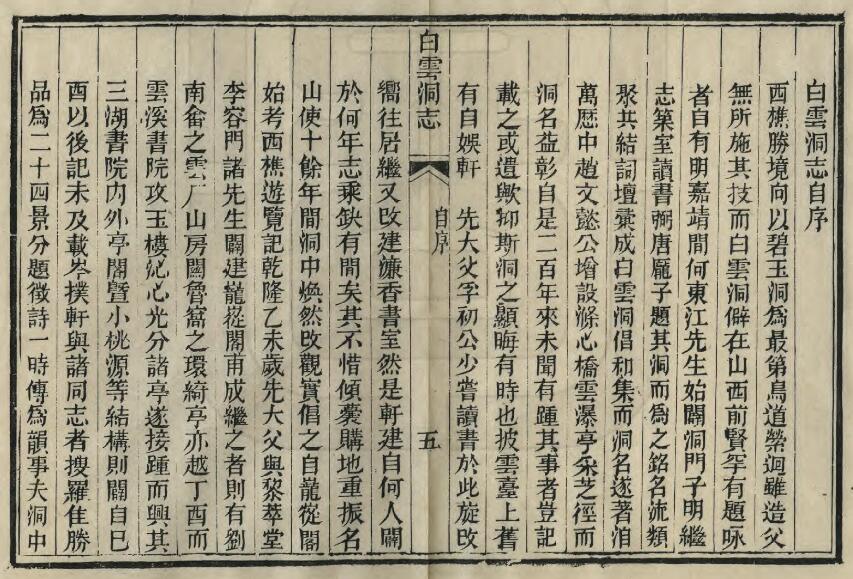 白雲洞志自序
西樵勝境向以碧玉洞爲最第鳥道縈迴雖造父
無所施其技而白雲洞僻在山西前賢罕有題咏
者自有明嘉靖間何東江先生始闢洞門子明繼
志築室讀書弼唐龐子題其洞而爲之銘名流類
聚共結詞壇彙成白雲洞倡和集而洞名遂著洎
萬歷中趙文懿公增設滌心橋雲瀑亭采芝徑而
洞名益彰自是二百年來未聞有踵其事者豈記
載之或遺歟抑斯洞之顯晦有時也披雲臺上舊
有自娛軒 先大父孚初公少嘗讀書於此旋改
白雲洞志 自序 五
嚮往居繼又改建濂香書室然是軒建自何人闢
於何年志乘缺有間矣其不惜傾囊購地重振名
山使十餘年間洞中煥然改觀實倡之自龍從閣
始考西樵遊覽記乾隆乙未歲先大父與黎萃堂
李容門諸先生闢建龍從閣甫成繼之者則有劉
南畬之雲厂山房關魯窩之環綺亭亦越丁酉而
雲溪書院攻玉樓沁心光分諸亭遂接踵而興其
三湖書院內外亭閣暨小桃源等結構則闢自巳
酉以後記未及載岑撲軒與諸同志者搜羅佳勝
品爲二十四景分題徵詩一時傳爲韻事夫洞中